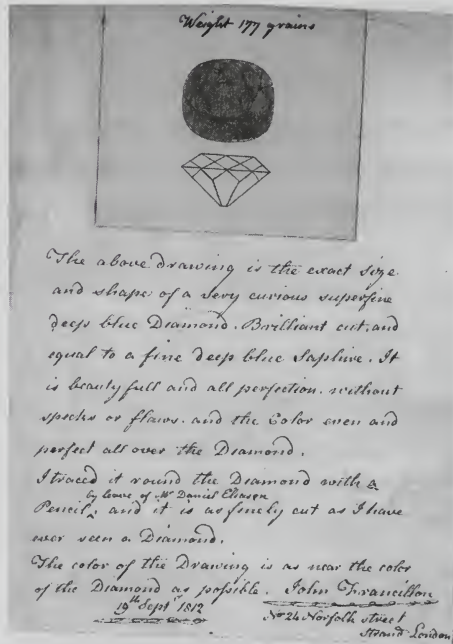 Weight 177 grains
The above drawing is the exact size
and shape of a very curious superfine
deep blue Diamond. Brilliant cut, and
equal to a fine deep blue Saphire. It
is beautyfull and all perfection. without
specks or flaws. and the Color even and
perfect all over the Diamond.
I traced it round the Diamond with a
by leave of Mr Daniel Eliason
Pencil, and it is as finely cut as I have
ever seen a Diamond.
The color of the Drawing is as near the color
of the Diamond as possible. John Francillon
19th Sept 1812
No 24 Norfolk street
Strand London